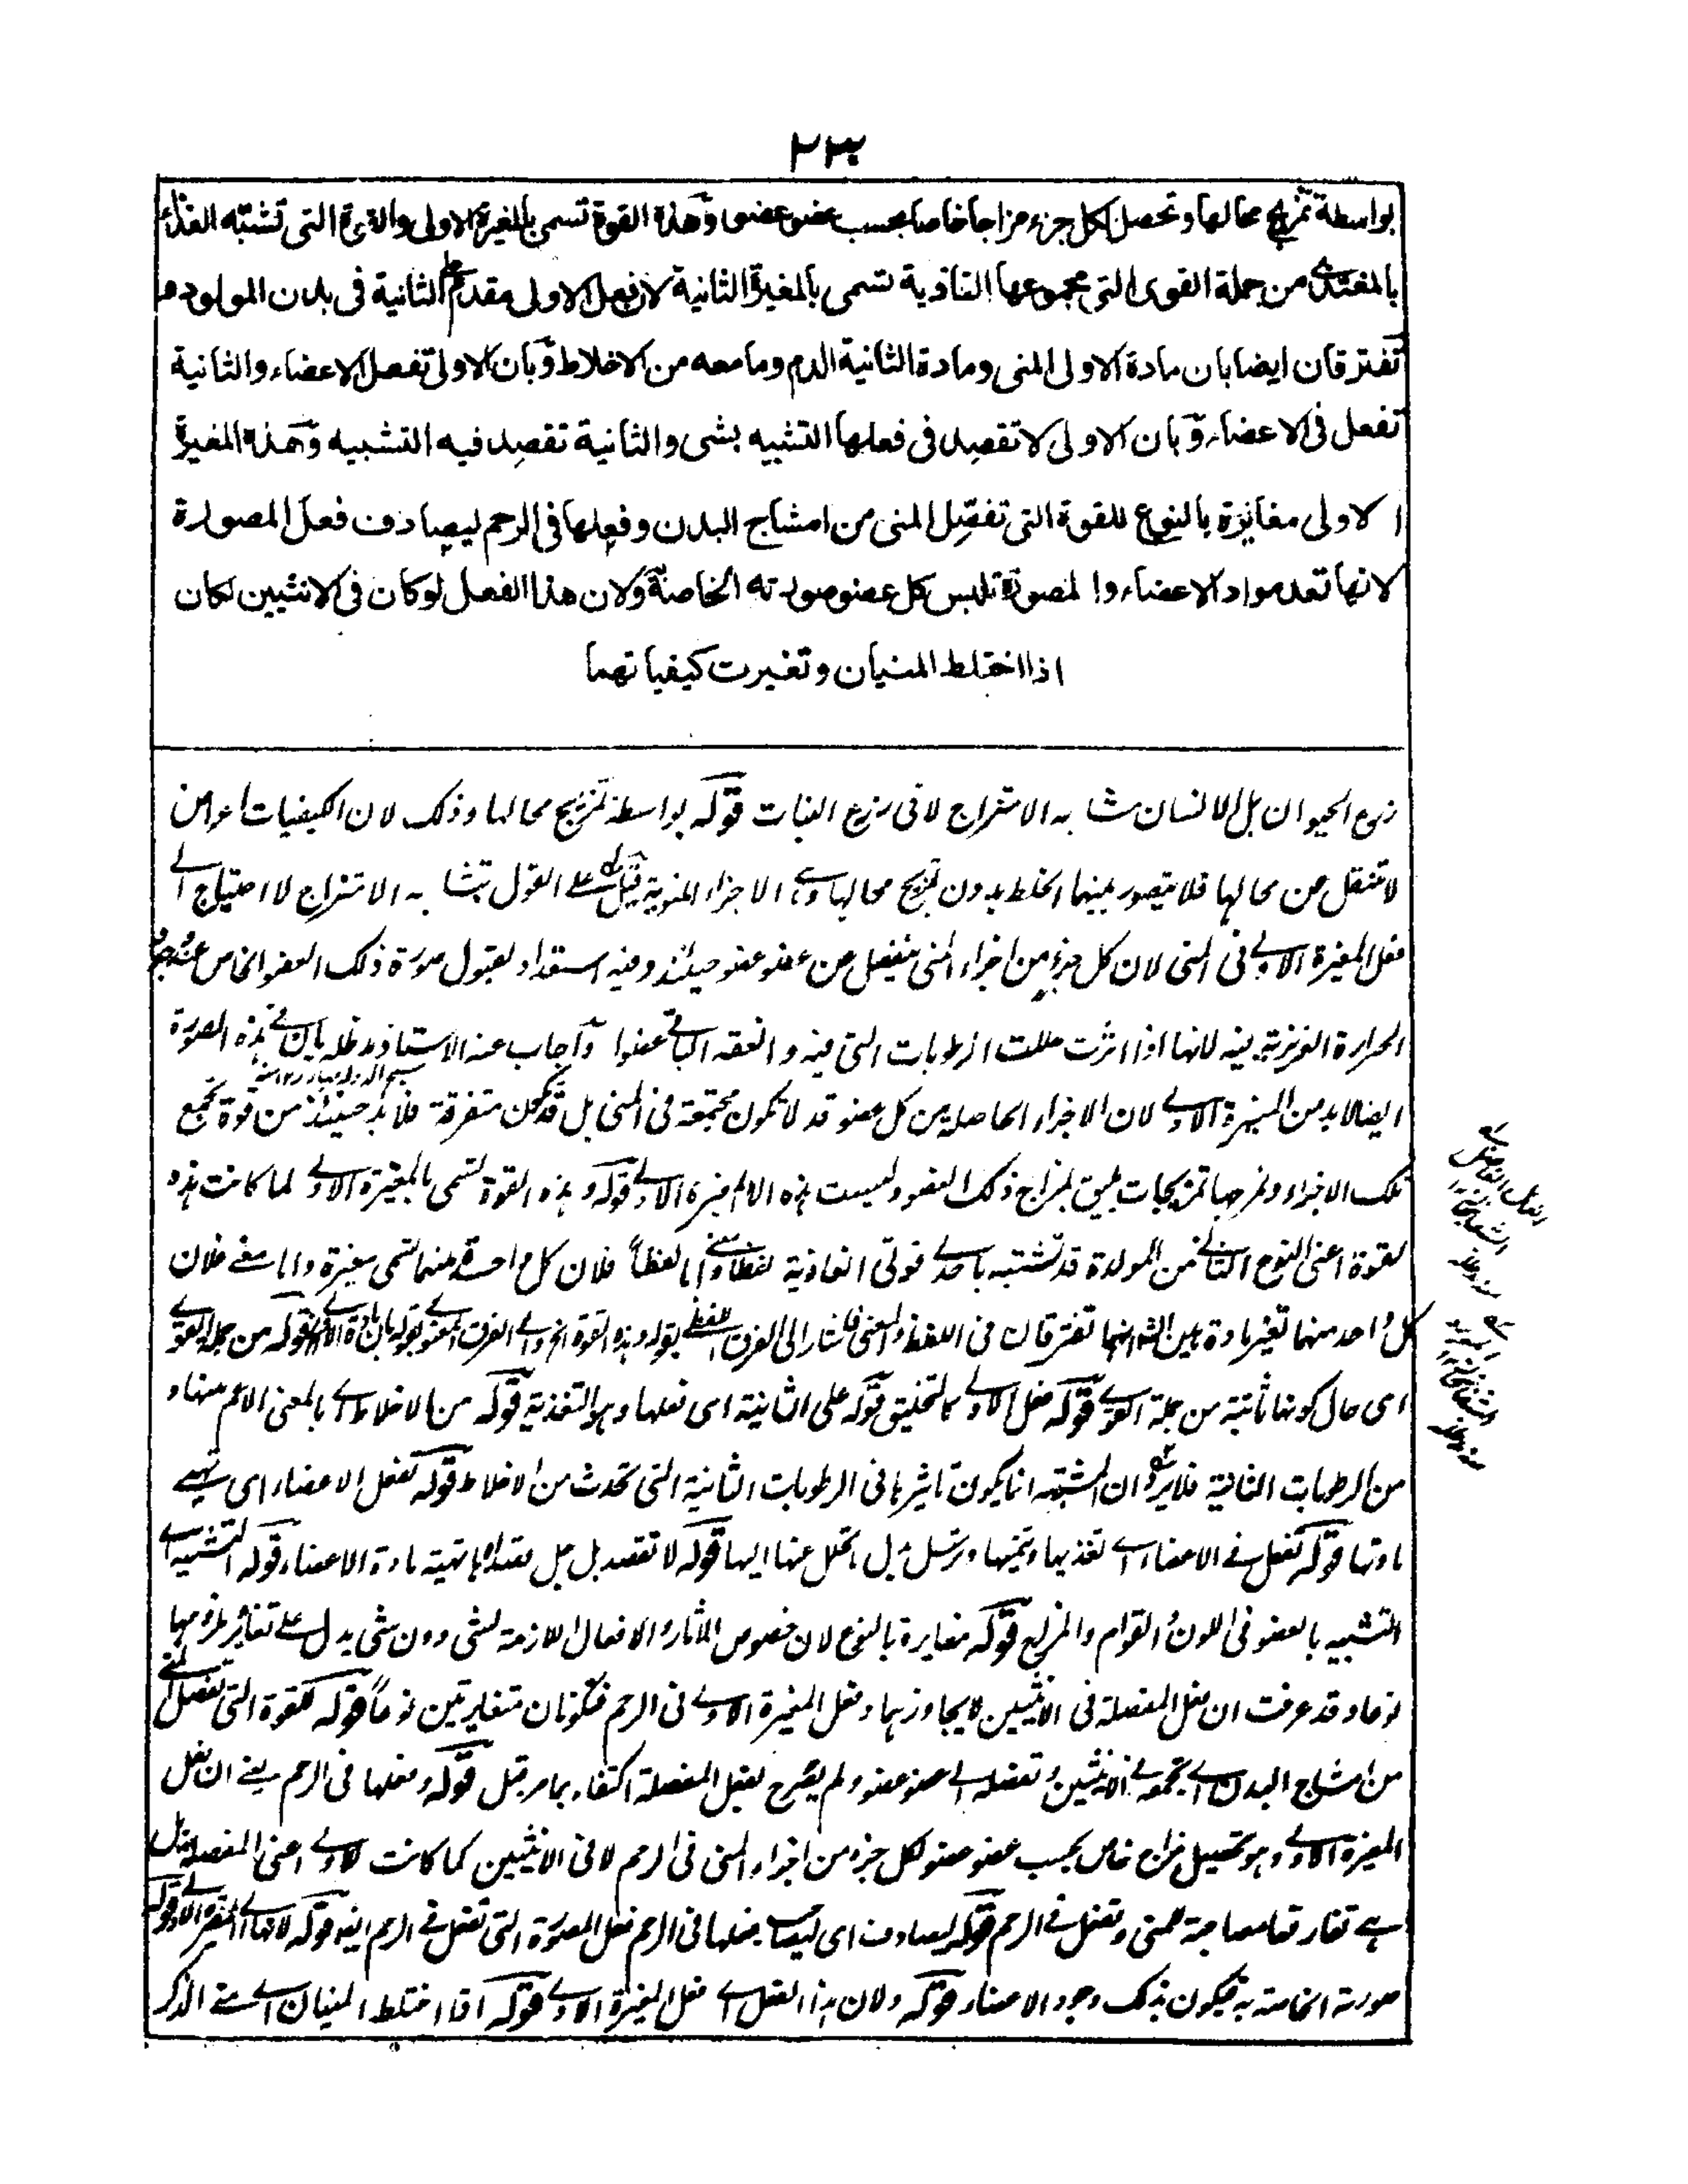 ٢٢٣
بواسطة تمزيج محالها وتحصل لكل جزء مزاجا خاصا بحسب عضو عضو وهذه القوة تسمى بالمغيرة الاولى والقوة التى تشبه الغذاء
بالمغتذى من جملة القوى التى مجموعها الغاذية تسمى بالمغيرة الثانية لان فعل الاولى مقدم على الثانية فى بدن المولود وهما
تفترقان ايضا بان مادة الاولى المنى ومادة الثانية الدم وما معه من الاخلاط وبان الاولى تفعل الاعضاء والثانية
تفعل فى الاعضاء وبان الاولى لا تقصد فى فعلها التشبيه بشى والثانية تقصد فيه التشبيه وهذه المغيرة
الاولى مغائرة بالنوع للقوة التى تفصّل المنى من امشاج البدن وفعلها فى الرحم ليصادف فعل المصورة
لانها تعد مواد الاعضاء والمصورة تلبس كل عضو صورته الخاصة ولان هذا الفعل لو كان فى الانثيين لكان
اذا اختلط المنيان وتغيرت كيفياتهما
نوع الحيوان بل الانسان متشابه الامتزاج لا فى نوع النبات قوله بواسطة تمزيج محالها وذلك لان الكيفيات اعراض
لا تنتقل عن محالها فلا يتصور بينها الخلط بدون تمزيج محالها وهى الاجزاء المنوية قيل على القول بتشابه الامتزاج لا احتياج الى
فعل المغيرة الاولى فى المنى لان كل جزء من اجزاء المنى ينفصل عن عضو عضو حينئذ وفيه استعداد لقبول صورة ذلك العضو الخاص عند
الحرارة الغريزية فيه لانها اذا اثرت حللت الرطوبات التى فيه وانعقد الباقى عضوا واجاب عنه الاستاذ مد ظله بان فى هذه الصورة
ايضا لا بد من المغيرة الاولى لان الاجزاء الحاصلة من كل عضو قد لا تكون مجتمعة فى المنى بل قد تكون متفرقة فلا بد حينئذ من قوة تجمع
تلك الاجزاء وتمزجها تمزيجات يليق بمزاج ذلك العضو وليست هذه الا المغيرة الاولى قوله وهذه القوة تسمى بالمغيرة الاولى لما كانت هذه
القوة اعنى النوع الثانى من المولدة قد تشتبه باحدى قوتى الغاذية لفظا ومعنى اما لفظاً فلان كل واحدة منهما تسمى مغيرة واما معنى فلان
كل واحد منهما تغير مادة بين انهما تفترقان فى اللفظ والمعنى فاشار الى الفرق اللفظى بقوله وهذه القوة الخ والى الفرق المعنوى بقوله بان مادة الاولى قوله من جملة القوى
اى حال كونها ثابتة من جملة القوى قوله فعل الاولى كالتخليق قوله على الثانية اى فعلها وهو التغذية قوله من الاخلاط اى بالمعنى الاعم منها و
من الرطوبات الثانية فلا يرد ان المشبهة انما يكون تاثيرها فى الرطوبات الثانية التى تحدث من الاخلاط قوله تفعل الاعضاء اى تهيئ
مادتها قوله تفعل فى الاعضاء اى تغذيها وتنميها وترسل بدل ما تحلل عنها اليها قوله لا تقصد بل جل مقصدها تهية مادة الاعضاء قوله التشبيه اى
التشبيه بالعضو فى اللون والقوام والمزاج قوله مغايرة بالنوع لان خصوص الآثار والافعال اللازمة لشى دون شى يدل على تغائر ملزومها
نوعا وقد عرفت ان فعل المفصلة فى الانثيين لا يجاوزهما وفعل المغيرة الاولى فى الرحم فتكونان متغايرتين نوعاً قوله للقوة التى تفصل المنى
من امشاج البدن اى تجمعه فى الانثيين وتفصله الى عضو عضو ولم يصرح بفعل المفصلة اكتفاء بما مر قبل قوله وفعلها فى الرحم يعنى ان فعل
المغيرة الاولى وهو تحصيل مزاج خاص بحسب عضو عضو لكل جزء من اجزاء المنى فى الرحم لا فى الانثيين كما كانت الاولى اعنى المفصلة بل
هى تفارقها مصاحبة للمنى وتفعل فى الرحم قوله ليصادف اى ليصاحب فعلها فى الرحم فعل المصورة التى تفعل فى الرحم ايضا قوله لانها اى المغيرة الاولى قوله
صورته الخاصة به فيكون بذلك وجود الاعضاء قوله ولان هذا الفعل اى فعل المغيرة الاولى قوله اذا اختلط المنيان اى منى الذكر